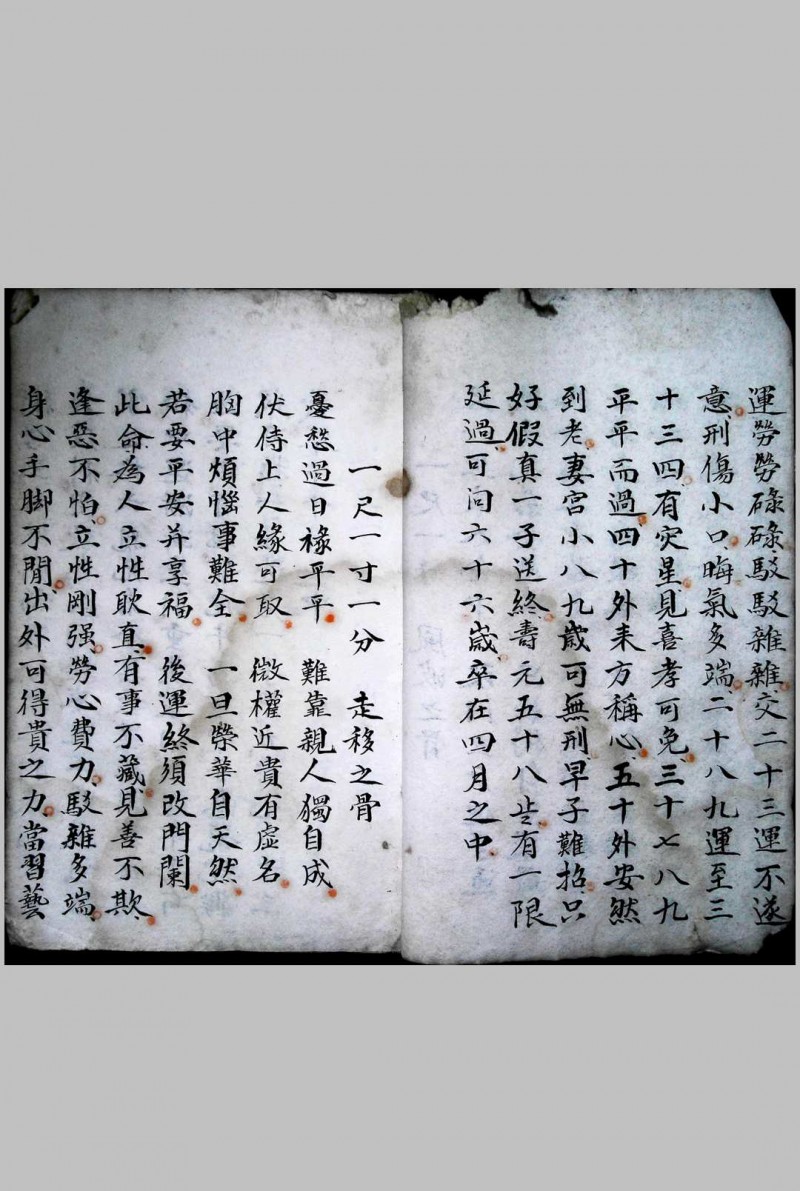 運勞勞碌碌駁駁雜雜交二十三運不遂
意刑傷小口晦氣多端二十八九運至三
十三四有灾星見喜孝可免三十七八九
平平而過四十外来方稱心五十外安然
到老妻宮小八九歲可無刑早子難招只
好假真一子送終壽元五十八歩有一限
延過可问六十六歲卒在四月之中
一尺一寸一分 走移之骨
憂愁過日祿平平 難靠親人獨自成
伏侍上人緣可取 微權近貴有虛名
胸中煩惱事難全 一旦榮華自天然
若要平安并享福 後運終須改門闌
此命為人立性耿直有事不藏見善不欺
逢惡不怕立性剛强勞心費力駁雜多端
身心手脚不閒出外可得貴之力當習藝